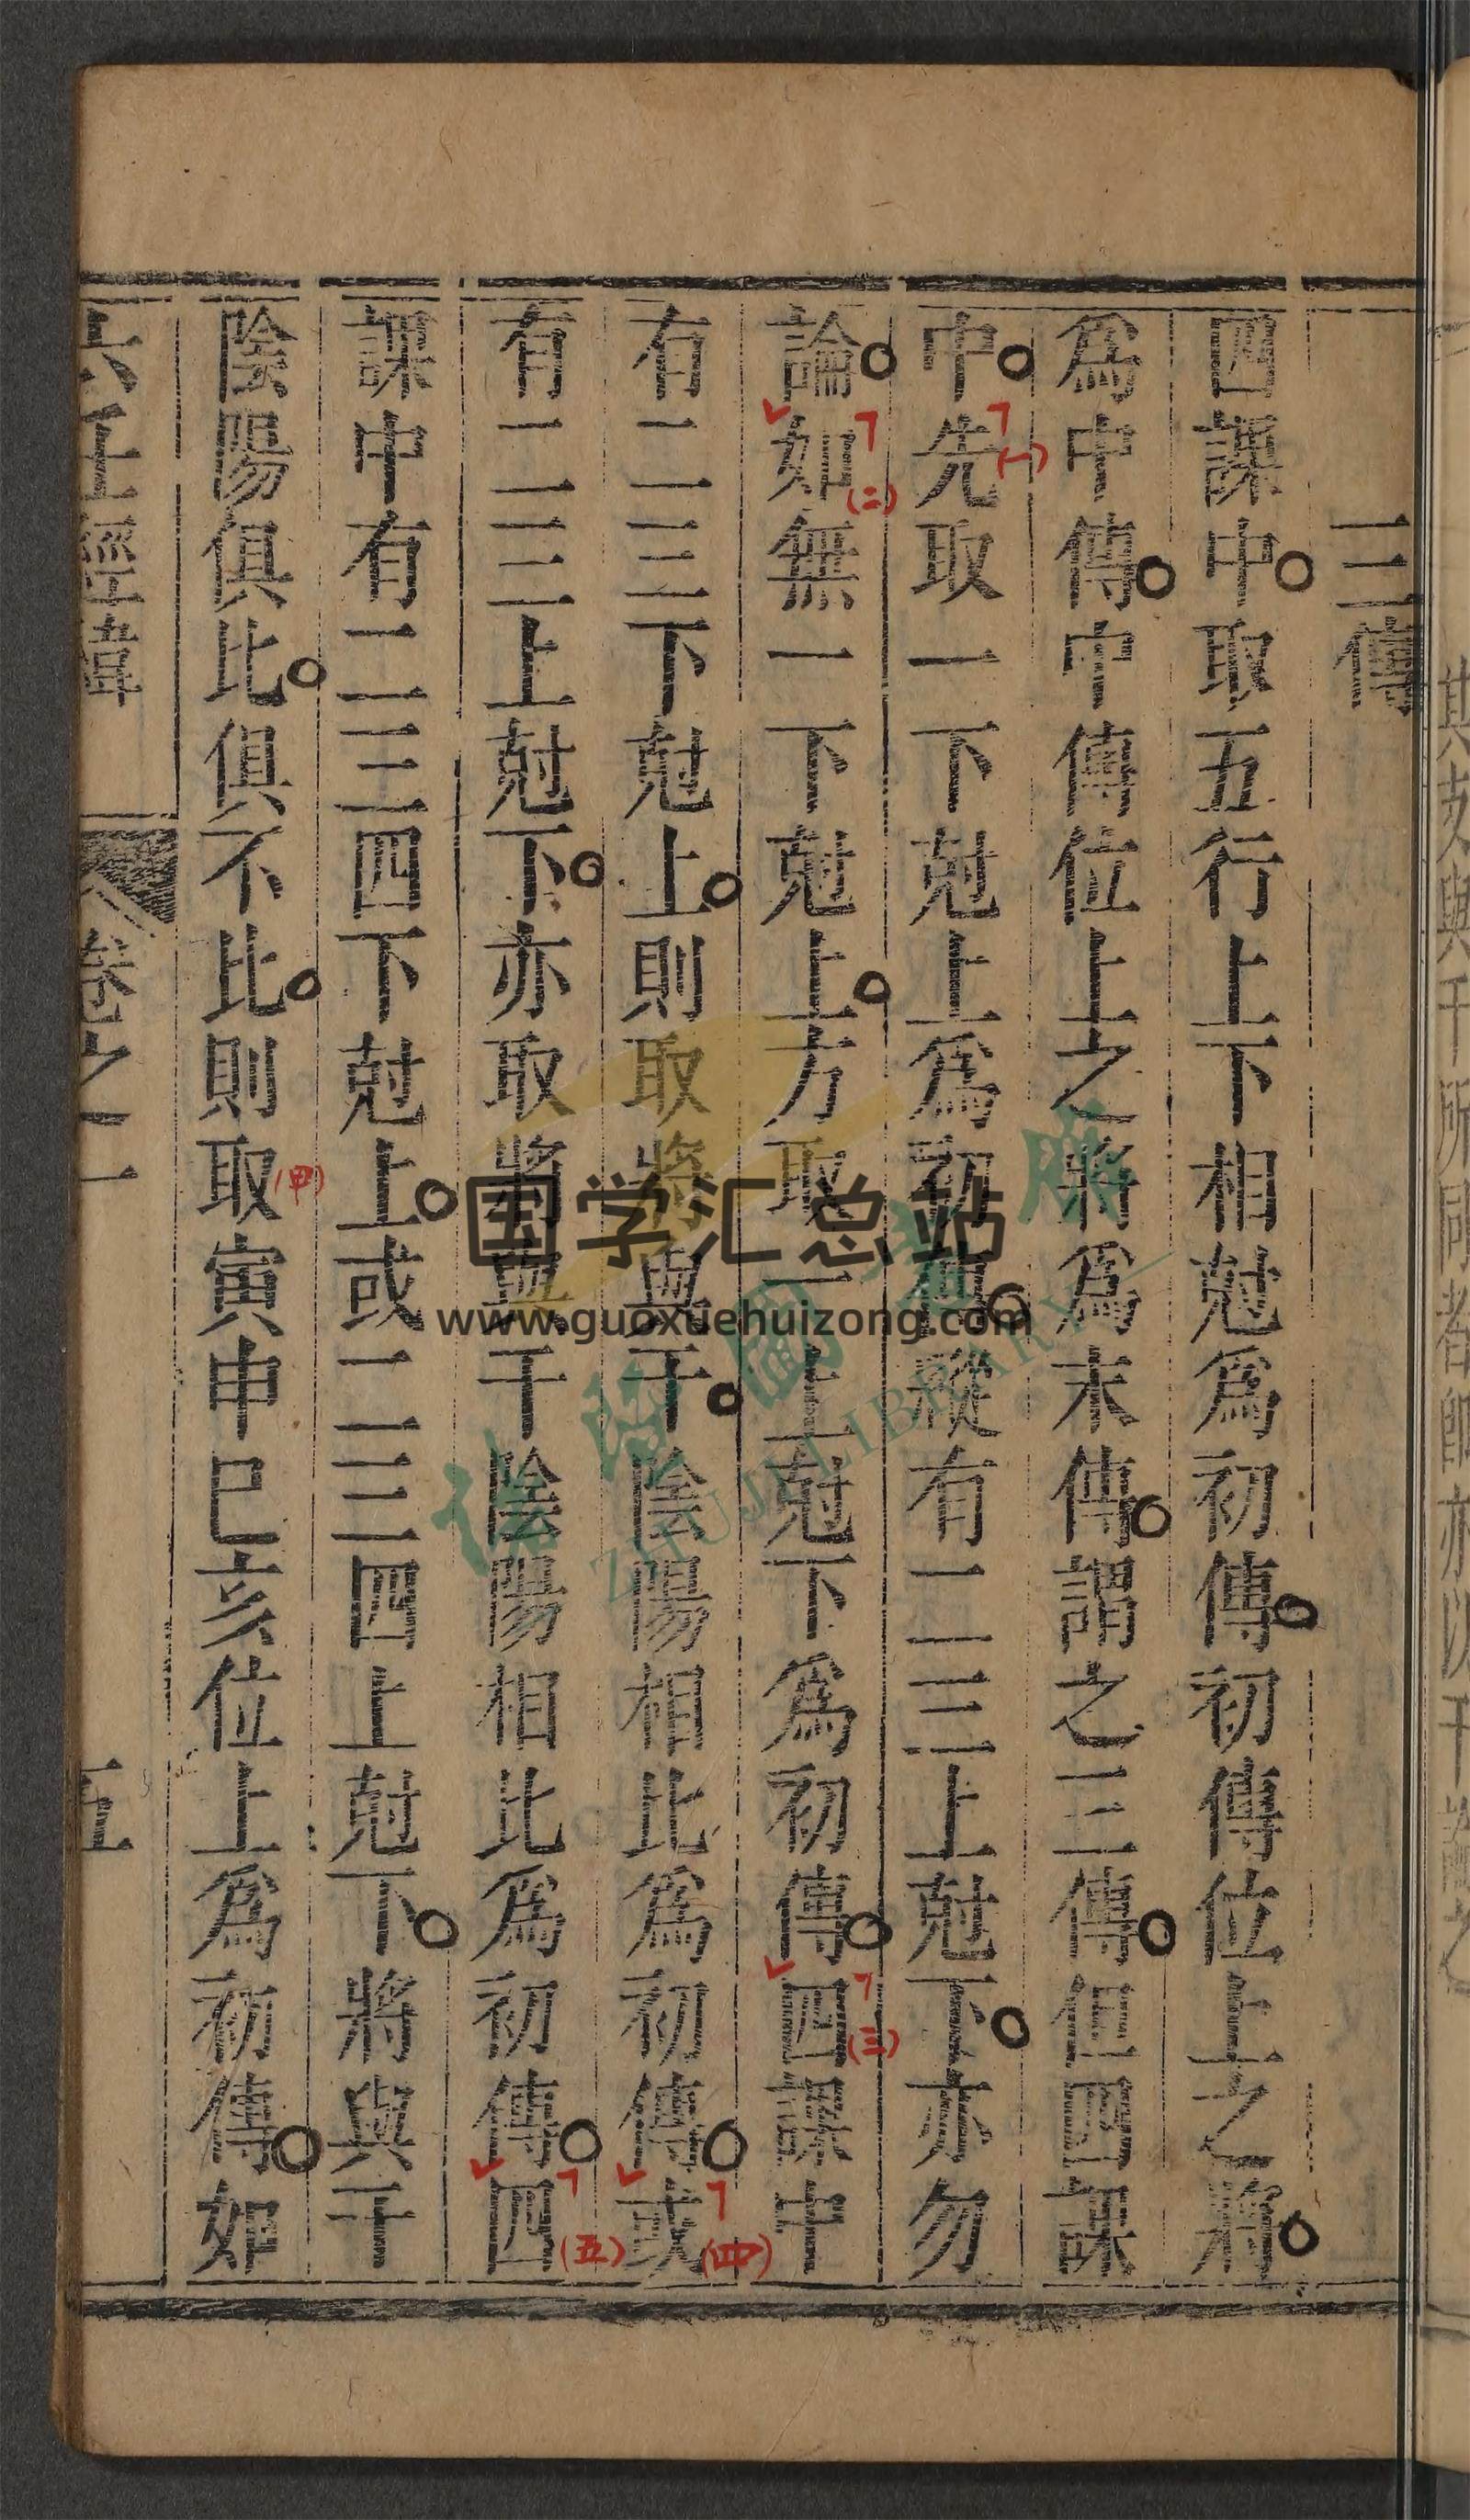 三傳
四課中取五行上下相尅爲初傳初傳位上之將
爲中傳中傳位上之將爲末傳謂之三傳但四課
中先取一下尅上爲初傳縱有二三上尅下亦勿
論如無一下尅上方取一上尅下爲初傳四課中
有二三下尅上則取將與干陰陽相比爲初傳或
有二三上尅下亦取將與干陰陽相比爲初傳四
課中有二三四下尅上或二三四上尅下將與干
陰陽俱比俱不比則取寅申巳亥位上爲初傳如
六壬經緯 卷之一 五
(一)
(二)
(三)
(四)
(五)
(甲)
国学汇总站
www.guoxuehuizong.com
ZHUJI LIBRARY
其支與干所同者卽亦以干論之